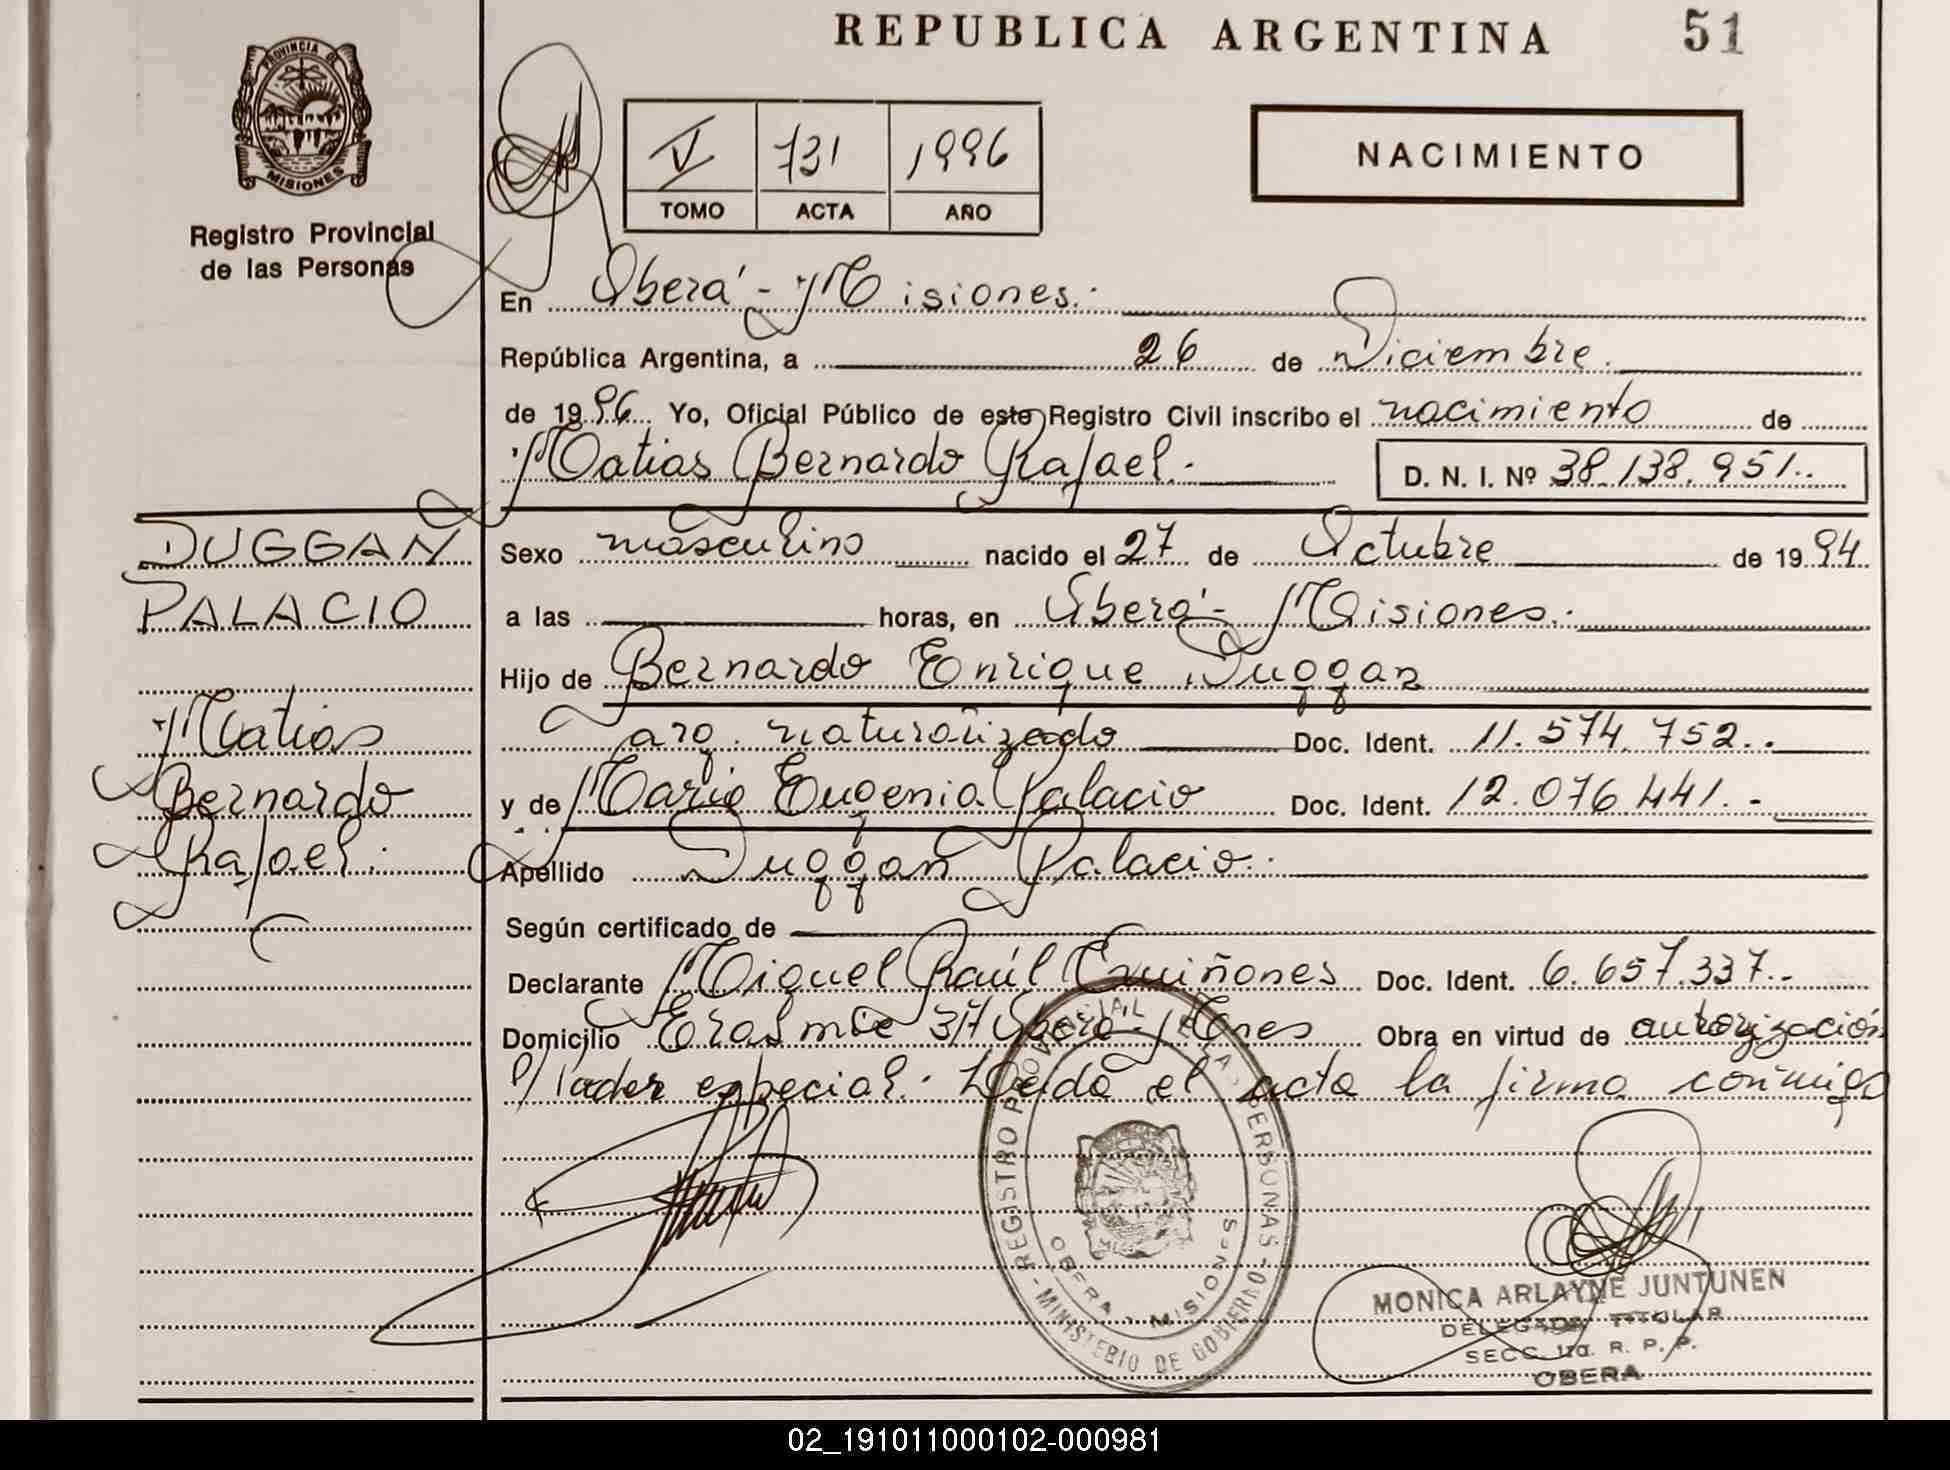 REPUBLICA ARGENTINA
51
PROVINCIA DE
MISIONES
Registro Provincial
de las Personas
V 731 1996
TOMO ACTA AÑO
NACIMIENTO
En Oberá - Misiones.
República Argentina, a 26 de Diciembre.
de 1996. Yo, Oficial Público de este Registro Civil inscribo el nacimiento de
Matias Bernardo Rafael.
D. N. I. Nº 38.138.951..
DUGGAN
PALACIO
Matias
Bernardo
Rafael.
Sexo masculino nacido el 27 de Octubre de 1994.
a las horas, en Oberá - Misiones.
Hijo de Bernardo Enrique Duggan
arg. naturalizado Doc. Ident. 11.574.752..
y de Maria Eugenia Palacio Doc. Ident. 12.076.441.-
Apellido Duggan Palacio.
Según certificado de
Declarante Miguel Raúl Quiñones Doc. Ident. 6.657.337..
Domicilio 37 Oberá - Mnes Obra en virtud de autorización
p/ Poder especial. Leída el acta la firma conmigo
REGISTRO PROVINCIAL DE LAS PERSONAS
- MINISTERIO DE GOBIERNO -
OBERA - MISIONES
MONICA ARLAYNE JUNTUNEN
DELEGADA TITULAR
SECC. 1ra. R. P. P.
OBERA
02_191011000102-000981